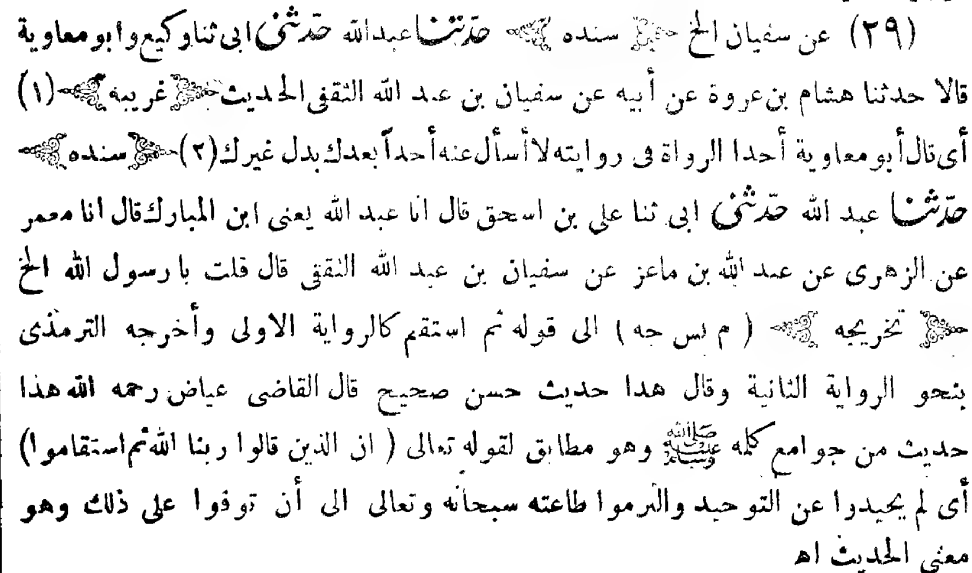 (٢٩) عن سفيان الخ ﴿ سنده ﴾ حدثنا عبد الله حدثنى ابى ثنا وكيع وابو معاوية
قالا حدثنا هشام بن عروة عن أبيه عن سفيان بن عبد الله الثقفى الحديث ﴿ غريبه ﴾ (١)
أى قال أبو معاوية أحد الرواة فى روايته لا أسأل عنه أحداً بعدك بدل غيرك (٢) ﴿ سنده ﴾
حدثنا عبد الله حدثنى ابى ثنا على بن اسحق قال انا عبد الله يعنى ابن المبارك قال انا معمر
عن الزهرى عن عبد الله بن ماعز عن سفيان بن عبد الله الثقفى قال قلت يا رسول الله الخ
﴿ تخريجه ﴾ ( م نس جه ) الى قوله ثم استقم كالرواية الاولى وأخرجه الترمذى
بنحو الرواية الثانية وقال هذا حديث حسن صحيح قال القاضى عياض رحمه الله هذا
حديث من جوامع كلمه ﷺ وهو مطابق لقوله تعالى ( ان الذين قالوا ربنا الله ثم استقاموا )
أى لم يحيدوا عن التوحيد والتزموا طاعته سبحانه وتعالى الى أن توفوا على ذلك وهو
معنى الحديث اه